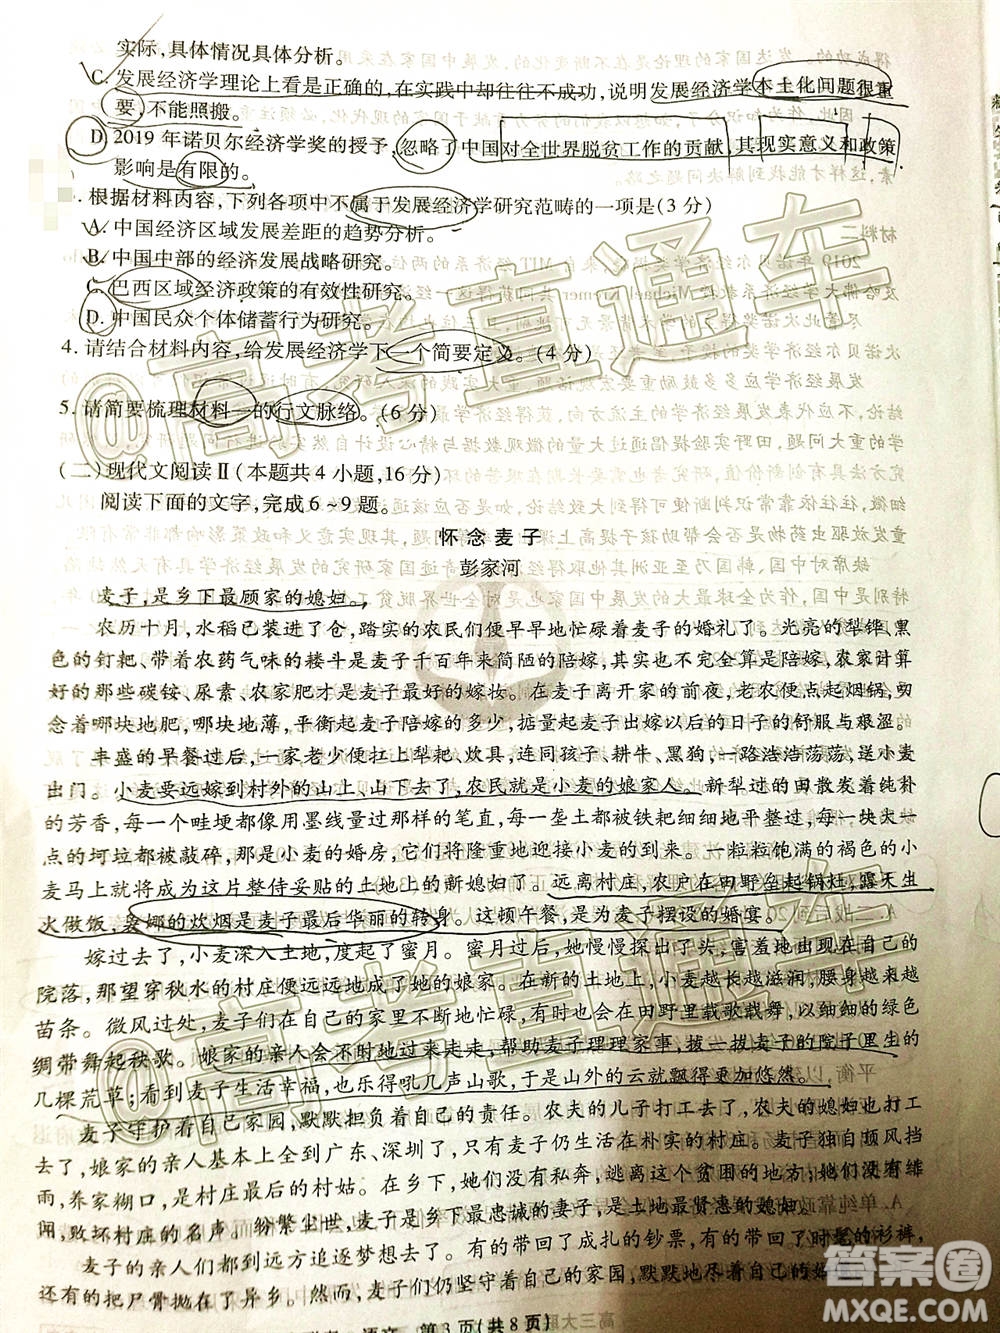 实际,具体情况具体分析。
C. 发展经济学理论上看是正确的,在实践中却往往不成功,说明发展经济学本土化问题很重
要,不能照搬。
D. 2019 年诺贝尔经济学奖的授予,忽略了中国对全世界脱贫工作的贡献,其现实意义和政策
影响是有限的。
根据材料内容,下列各项中不属于发展经济学研究范畴的一项是(3 分)
A. 中国经济区域发展差距的趋势分析。
B. 中国中部的经济发展战略研究。
C. 巴西区域经济政策的有效性研究。
D. 中国民众个体储蓄行为研究。
4. 请结合材料内容,给发展经济学下一个简要定义。(4 分)
5. 请简要梳理材料一的行文脉络。(6 分)
(二)现代文阅读Ⅱ(本题共 4 小题,16 分)
阅读下面的文字,完成 6~9 题。
怀念麦子
彭家河
麦子,是乡下最顾家的媳妇。
农历十月,水稻已装进了仓,踏实的农民们便早早地忙碌着麦子的婚礼了。光亮的犁铧、黑
色的钉耙、带着农药气味的耧斗是麦子千百年来简陋的陪嫁,温暖的土地是陪房,农家计算
好的那些碳铵、尿素、农家肥才是麦子最好的嫁妆。在麦子离开家的前夜,老农便点起烟锅,
念着哪块地肥,哪块地薄,平衡起麦子陪嫁的多少,掂量起麦子出嫁以后的日子的舒服与艰涩。
丰盛的早餐过后,一家老少便扛上犁耙、炊具,连同孩子、耕牛、黑狗,一路浩浩荡荡,送小麦
出门。小麦要远嫁到村外的山上、山下去了,农民就是小麦的娘家人。新犁过的田散发着纯朴
的芳香,每一个畦埂都像用墨线量过那样的笔直,每一垄土都被铁耙细细地平整过,每一块大一
点的坷垃都被敲碎,那是小麦的婚房,它们将隆重地迎接小麦的到来。一粒粒饱满的褐色的小
麦马上就将成为这片整侍妥贴的土地上的新媳妇了。远离村庄,农户在田野垒起锅灶,露天生
火做饭,袅娜的炊烟是麦子最后华丽的转身。这顿午餐,是为麦子摆设的婚宴。
嫁过去,小麦深入土地,度起了蜜月。蜜月过后,她慢慢探出了头,害羞地出现在自己的
院落,那望穿秋水的村庄便远远地成了她的娘家。在新的土地上,小麦越长越滋润,腰身越来越
苗条。微风过处,麦子们在自己的家里不断地忙碌,有时也在田野里载歌载舞,以细细的绿色
绸带舞起秧歌。娘家的亲人会不时地过来走走,帮助麦子理理家事,拔一拔麦子的院子里生的
几棵荒草;看到麦子生活幸福,也乐得吼几声山歌,于是山外的云就飘得更加悠然。
麦子守护着自己家园,默默担负着自己的责任。农夫的儿子打工去了,农夫的媳妇也打工
去了,娘家的亲人基本上全到广东、深圳了,只有麦子仍生活在朴实的村庄。麦子独自顶风挡
雨,养家糊口,是村庄最后的村姑。麦子没有私奔,逃离这个贫困的地方;麦子也没有绯
闻,败坏村庄的名声。纷繁尘世,麦子是乡下最忠诚的妻子,是土地最贤惠的媳妇。
麦子的亲人们都到远方追逐梦想去了。有的带回了成扎的钞票,有的带回了时髦的衫裤,
还有的把尸骨抛在了异乡。麦子们仍坚守着自己的家园,默默地
第 3 页(共 8 页)
@高考直通车
@高考直通车
答案圈
MXQE.COM